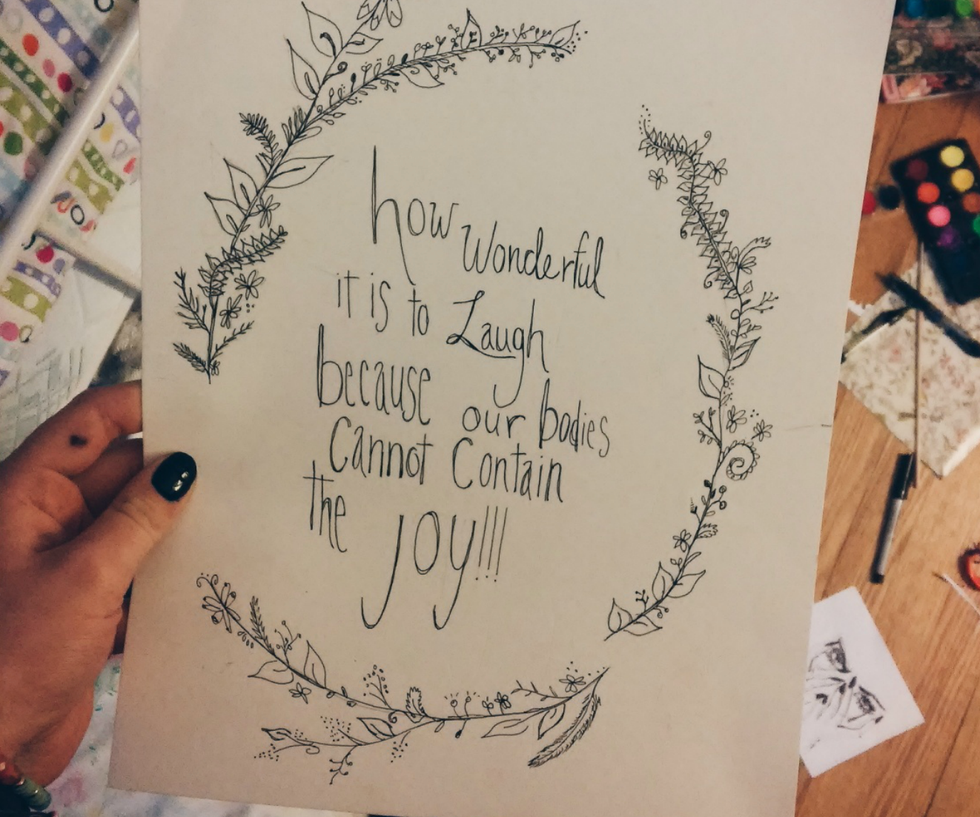 how Wonderful
it is to Laugh
because our bodies
Cannot Contain
the joy!!!